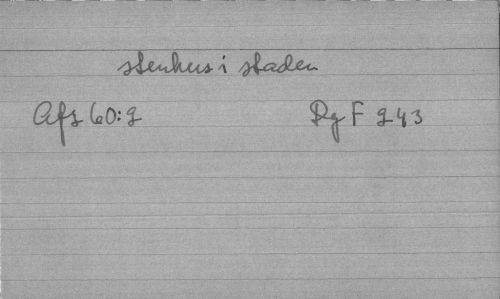 stenhus i staden
Afs 60:2 Rg F 243